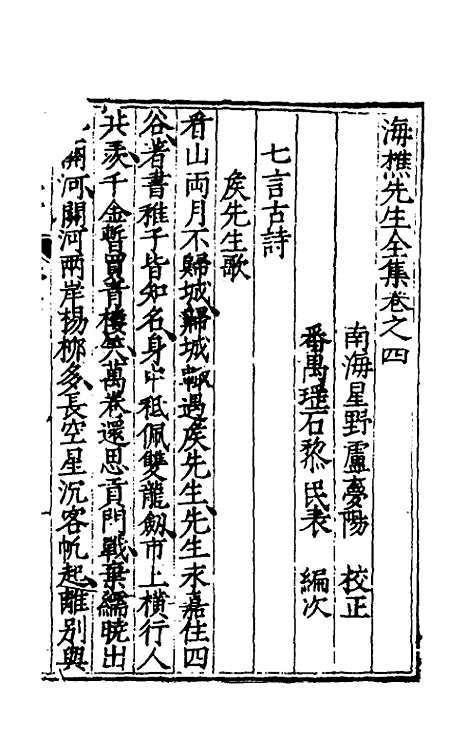 海樵先生全集卷之四
南海星野盧夢陽 校正
番禺瑶石黎民表 編次
七言古詩
矦先生歌
看山兩月不歸城歸城輙遇矦先生先生永嘉住四
谷著書稚子皆知名身中秪佩雙龍劔市上横行人
共羡千金暫買青樓笑萬卷還思貢門戰棄繻曉出
關河關河兩岸楊桞多長空星沉客帆起離别與